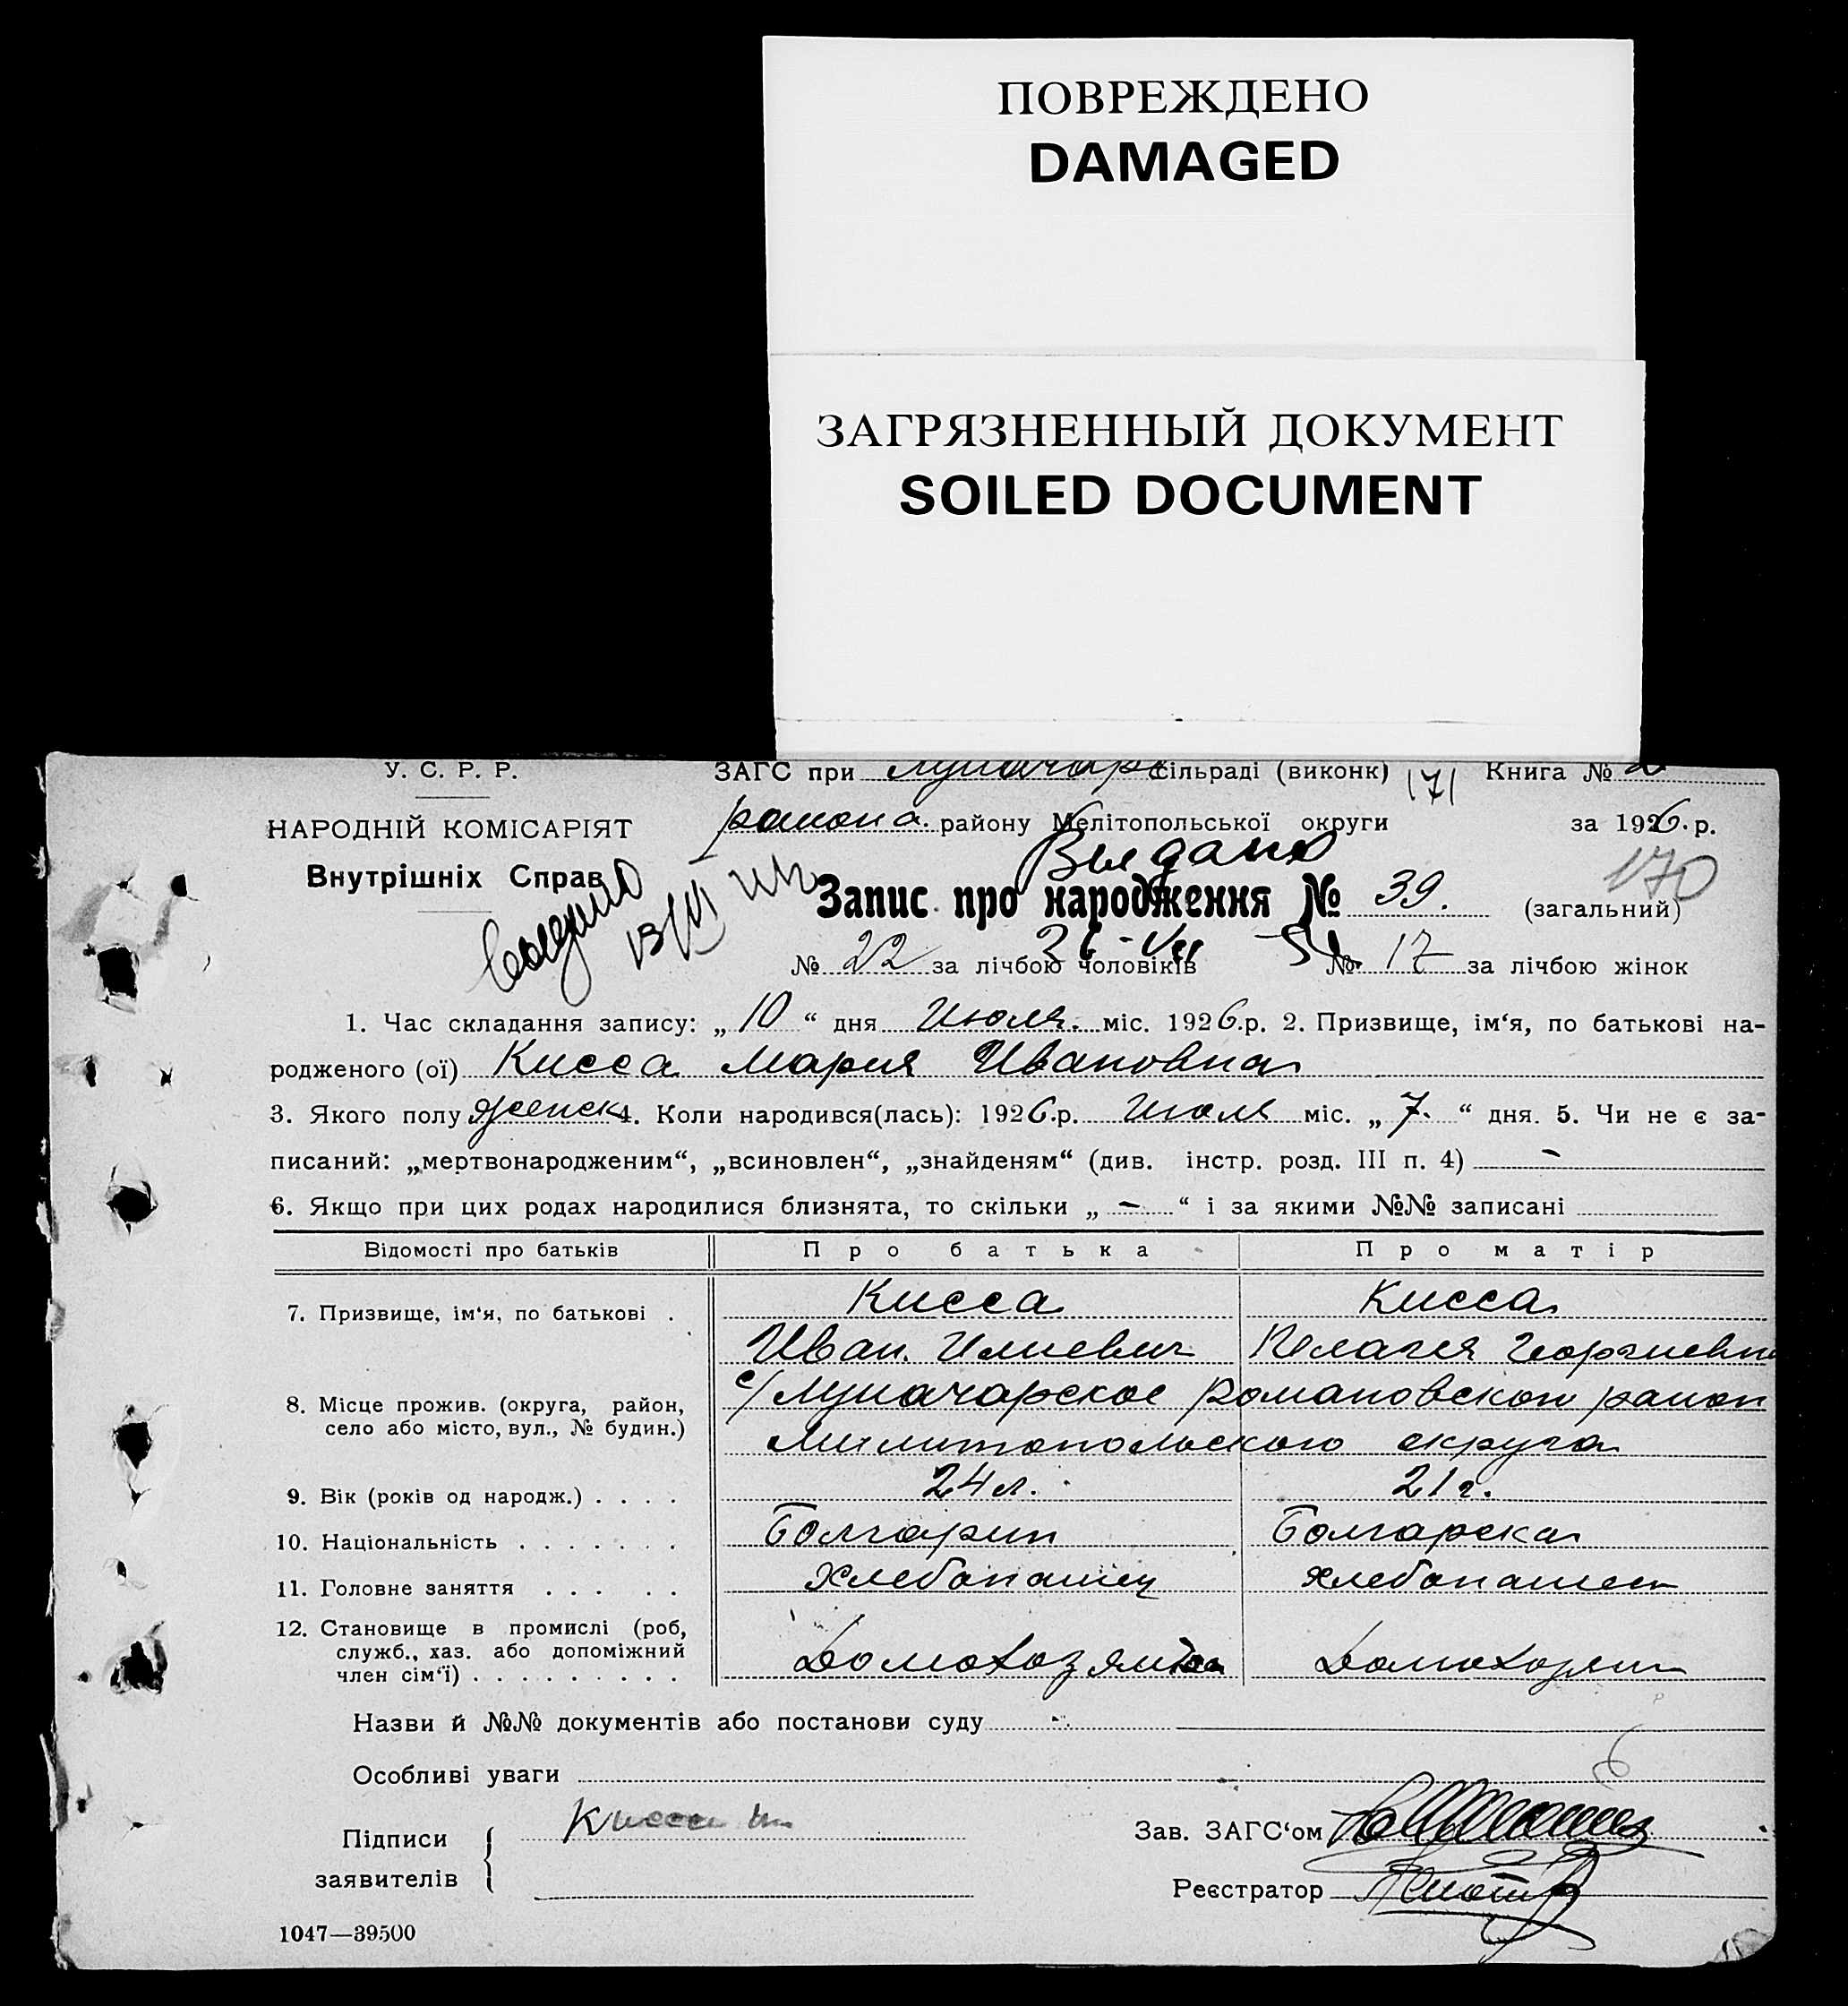 ПОВРЕЖДЕНО
DAMAGED
ЗАГРЯЗНЕННЫЙ ДОКУМЕНТ
SOILED DOCUMENT
У. С. Р. Р. ЗАГС при Луначарс сільраді (виконк) 171 Книга № 2
НАРОДНІЙ КОМІСАРІЯТ району Мелітопольської округи за 1926. р.
Внутрішніх Справ Выдано 170
Запис про народження № 39. (загальний)
13/VI
26-VII
№ 22 за лічбою чоловіків № 17 за лічбою жінок
1. Час складання запису: „ 10 “ дня Июля. міс. 1926.р. 2. Призвище, ім‘я, по батькові на-
родженого (ої) Кисса Мария Ивановна
3. Якого полу женск 4. Коли народився(лась): 1926.р. Июля міс. „ 7. “ дня. 5. Чи не є за-
писаний: „мертвонародженим“, „всиновлен“, „знайденям“ (див. інстр. розд. III п. 4) -
6. Якщо при цих родах народилися близнята, то скільки „ - “ і за якими №№ записані
Відомості про батьків Про батька Про матір
7. Призвище, ім‘я, по батькові . Кисса Кисса
Иван. Илиевич Пелагея Георгиевна
8. Місце прожив. (округа, район, с/Луначарское Романовского район
село або місто, вул., № будин.) Мелитопольского округа
9. Вік (років од народж.) . . . . 24 л. 21 г.
10. Національність . . . . . . . Болгарин Болгарска
11. Головне заняття . . . . . Хлебопашец хлебопашец
12. Становище в промислі (роб,
служб., хаз. або допоміжний
член сім‘ї) . . . . . . . . . Домохозяин Домохозяин
Назви й №№ документів або постанови суду -
Особливі уваги
Підписи
заявителів Кисса И
Зав. ЗАГС‘ом
Реєстратор
1047—39500